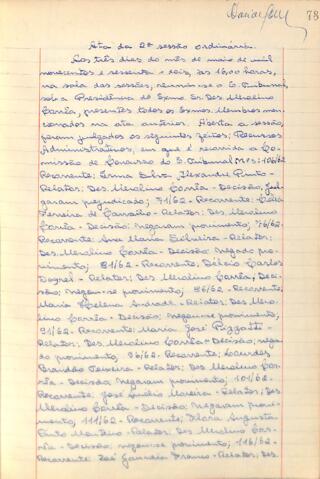 78
Ata da 2ª sessão ordinária.
Aos três dias do mês de maio de mil
novecentos e sessenta e dois, às 16,00 horas,
na sala das sessões, reuniu-se o E. Tribunal,
sob a Presidência do Exmo Sr. Des. Merolino
Corrêa, presentes todos os Exmos Membros men-
cionados na ata anterior. Aberta a sessão,
foram julgados os seguintes feitos: Recursos
Administrativos, em que é recorrida a Co-
missão de Concurso do E. Tribunal Nºs: 106/62
Recorrente: Irma Silva Alexandre Pinto -
Relator: Des Merolino Corrêa - Decisão, Jul-
garam prejudicado; 71/62 - Recorrente:
Ferreira de Carvalho - Relator: Des Merolino
Corrêa - Decisão: Negaram provimento; 76/62
Recorrente: Ana Maria - Relator:
Des. Merolino Corrêa - Decisão: Negado pro-
vimento; 81/62 - Recorrente, Délcio Carlos
- Relator: Des Merolino Corrêa, Deci-
são; Negou-se provimento; 86/62 - Recorrente,
Maria Helena Andrade - Relator: Des. Mero-
lino Corrêa - Decisão: Negou-se provimento,
91/62 - Recorrente: Maria José -
Relator: Des Merolino Corrêa - Decisão; nega-
do provimento, 96/62 - Recorrente; Lourdes
Brandão Teixeira - Relator: Des Merolino Cor-
rêa - Decisão: Negaram provimento; 101/62 -
Recorrente: José Moreira - Relator; Des
Merolino Corrêa - Decisão: Negaram provi-
mento, 111/62 - Recorrente, Augusta
Pinto Monteiro - Relator: Des. Merolino Cor-
rêa - Decisão: negou-se provimento; 116/62 -
Recorrente: José Franco - Relator, Des.